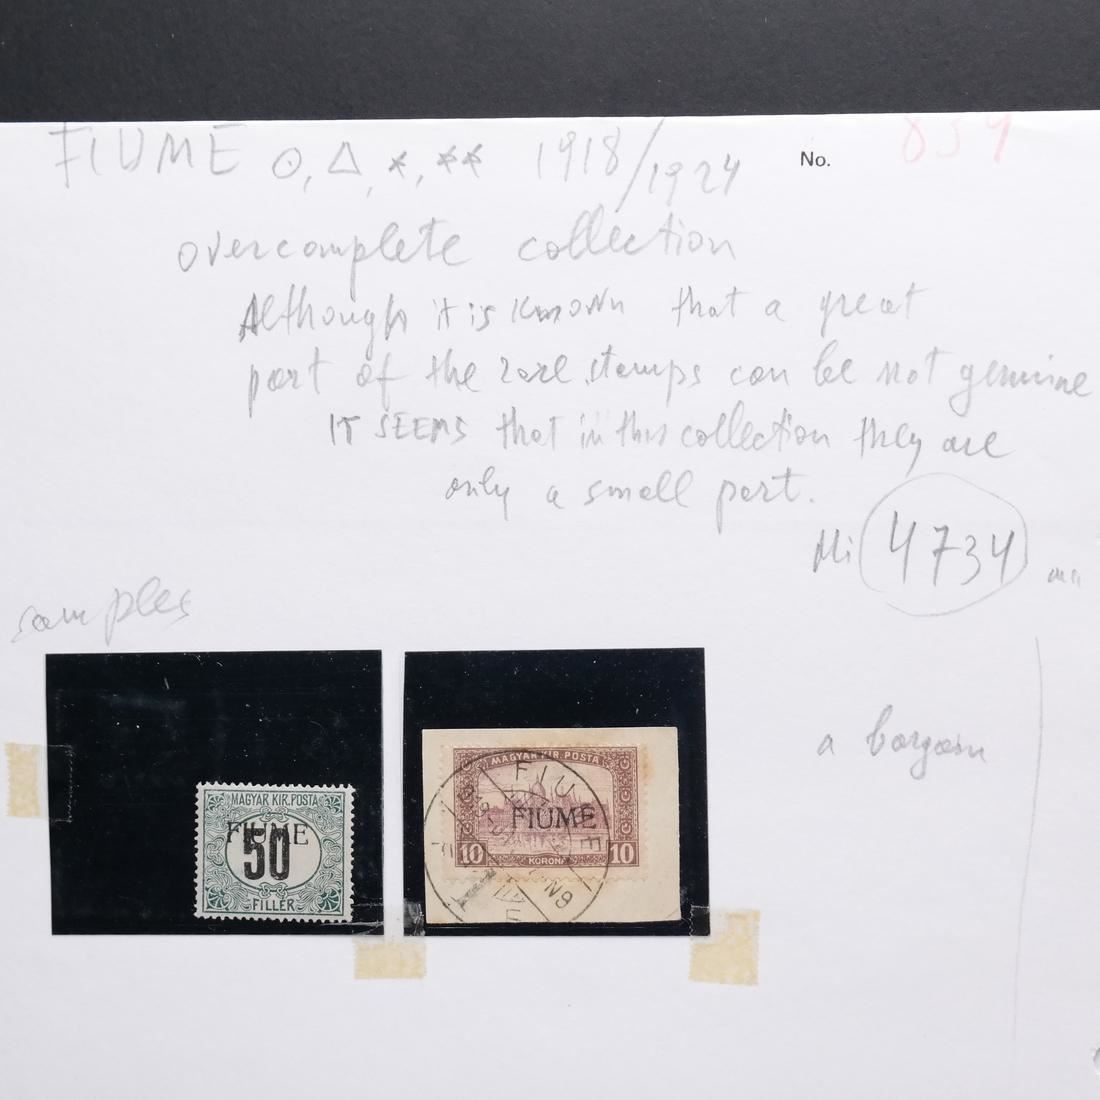 FIUME ⊙, △, *, ** 1918/1924
No. 859
overcomplete collection
Although it is known that a great
part of the rare stamps can be not genuine
IT SEEMS that in this collection they are
only a small part.
Mi 4734
samples
a bargain
MAGYAR KIR. POSTA
FIUME
50
FILLÉR
MAGYAR KIR. POSTA
FIUME
FIUME
10 KORONA 10